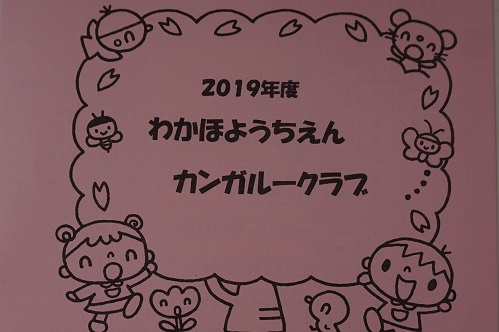 2019年度
わかほようちえん
カンガルークラブ